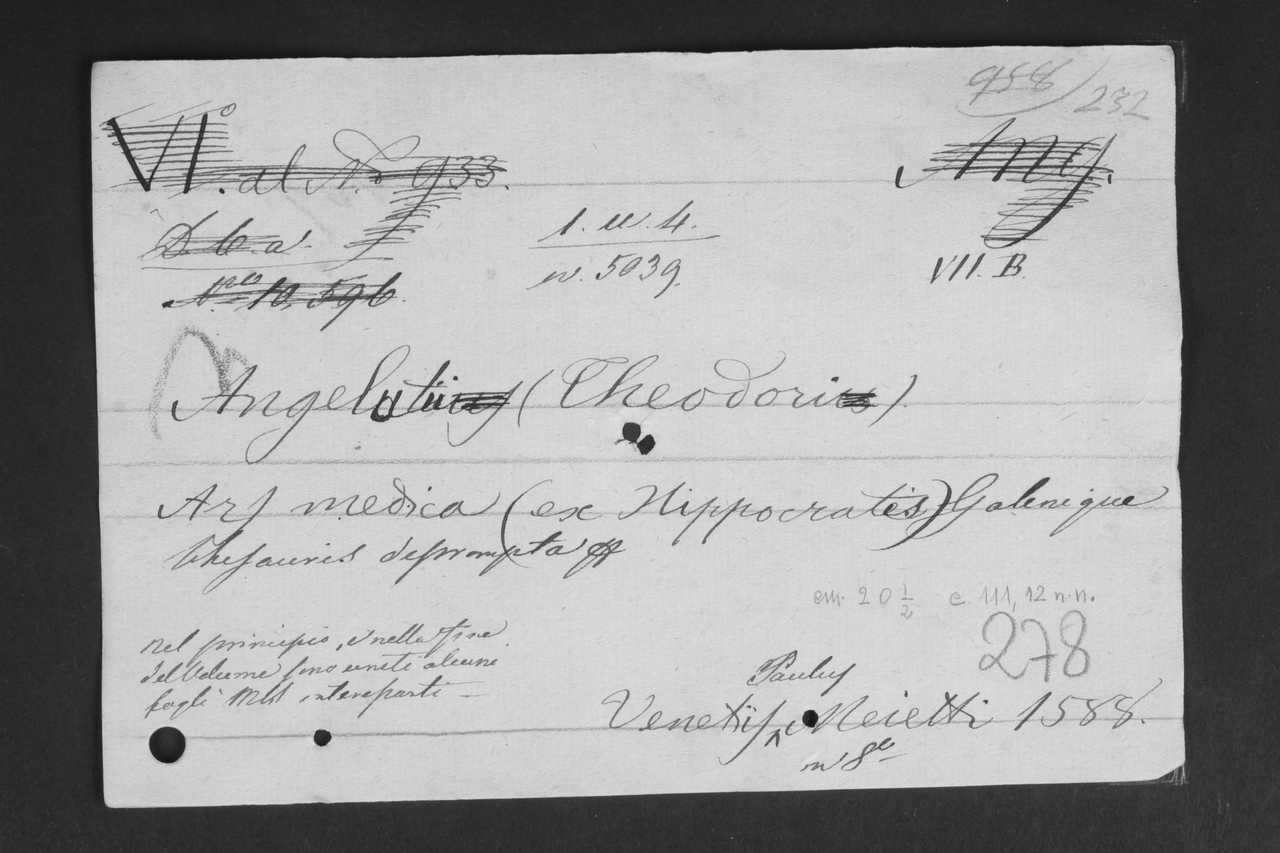 958 / 232
VI.° al N.° 933.
Ang.
D. C. a.
1. w. 4.
N.ro 10,596.
n. 5039.
VII. B.
Angelutius (Theodorius)
Ars medica (ex Hippocratis) Galenique
thesauris deprompta
cm. 20 1/2 c. 111, 12 n.n.
278
nel principio, e nella fine
del Volume sono uniti alcuni
fogli MSS intereparti –
Paulus
Venetijs, Meietti 1588.
in 8°